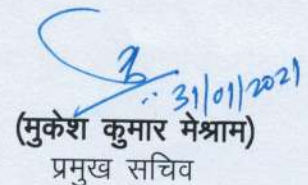 31/01/2021
(मुकेश कुमार मेश्राम)
प्रमुख सचिव